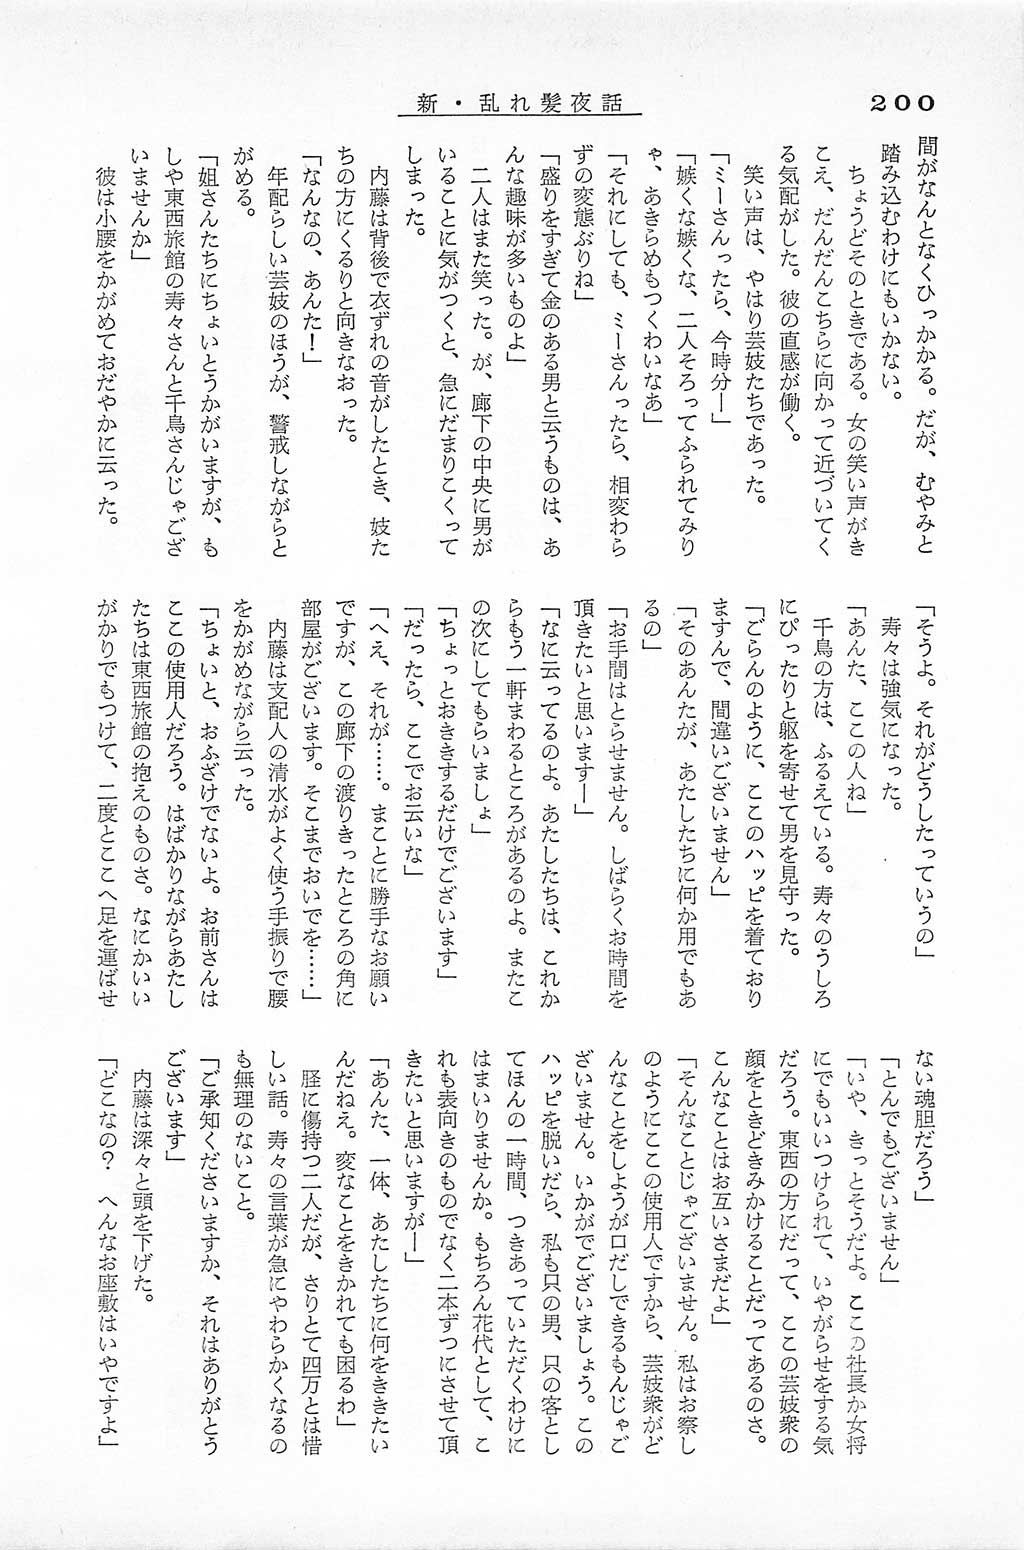 新・乱れ髪夜話
200
間がなんとなくひっかかる。だが、むやみと
踏み込むわけにもいかない。
ちょうどそのときである。女の笑い声がき
こえ、だんだんこちらに向かって近づいてく
る気配がした。彼の直感が働く。
笑い声は、やはり芸妓たちであった。
「ミーさんったら、今時分―」
「嫉くな嫉くな、二人そろってふられてみり
ゃ、あきらめもつくわいなあ」
「それにしても、ミーさんったら、相変わら
ずの変態ぶりね」
「盛りをすぎて金のある男と云うものは、あ
んな趣味が多いものよ」
二人はまた笑った。が、廊下の中央に男が
いることに気がつくと、急にだまりこくって
しまった。
内藤は背後で衣ずれの音がしたとき、妓た
ちの方にくるりと向きなおった。
「なんなの、あんた！」
年配らしい芸妓のほうが、警戒しながらと
がめる。
「姐さんたちにちょいとうかがいますが、も
しや東西旅館の寿々さんと千鳥さんじゃござ
いませんか」
彼は小腰をかがめておだやかに云った。
「そうよ。それがどうしたっていうの」
寿々は強気になった。
「あんた、ここの人ね」
千鳥の方は、ふるえている。寿々のうしろ
にぴったりと躯を寄せて男を見守った。
「ごらんのように、ここのハッピを着ており
ますんで、間違いございません」
「そのあんたが、あたしたちに何か用でもあ
るの」
「お手間はとらせません。しばらくお時間を
頂きたいと思います―」
「なに云ってるのよ。あたしたちは、これか
らもう一軒まわるところがあるのよ。またこ
の次にしてもらいましょ」
「ちょっとおききするだけでございます」
「だったら、ここでお云いな」
「へえ、それが……。まことに勝手なお願い
ですが、この廊下の渡りきったところの角に
部屋がございます。そこまでおいでを……」
内藤は支配人の清水がよく使う手振りで腰
をかがめながら云った。
「ちょいと、おふざけでないよ。お前さんは
ここの使用人だろう。はばかりながらあたし
たちは東西旅館の抱えのものさ。なにかいい
がかりでもつけて、二度とここへ足を運ばせ
ない魂胆だろう」
「とんでもございません」
「いや、きっとそうだよ。ここの社長か女将
にでもいいつけられて、いやがらせをする気
だろう。東西の方にだって、ここの芸妓衆の
顔をときどきみかけることだってあるのさ。
こんなことはお互いさまだよ」
「そんなことじゃございません。私はお察し
のようにここの使用人ですから、芸妓衆がど
んなことをしようが口だしできるもんじゃご
ざいません。いかがでございましょう。この
ハッピを脱いだら、私も只の男、只の客とし
てほんの一時間、つきあっていただくわけに
はまいりませんか。もちろん花代として、こ
れも表向きのものでなく二本ずつにさせて頂
きたいと思いますが―」
「あんた、一体、あたしたちに何をききたい
んだねえ。変なことをきかれても困るわ」
脛に傷持つ二人だが、さりとて四万とは惜
しい話。寿々の言葉が急にやわらかくなるの
も無理のないこと。
「ご承知くださいますか、それはありがとう
ございます」
内藤は深々と頭を下げた。
「どこなの？　へんなお座敷はいやですよ」